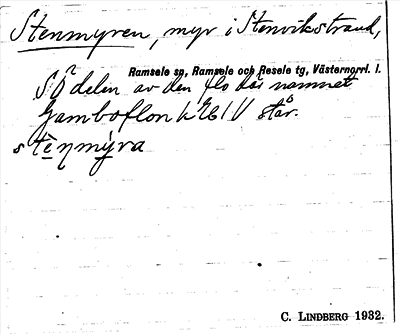 Stenmyren, myr i Stenvikstrand,
Ramsele sn, Ramsele och Resele tg, Västernorrl. l.
SÖ delen av den flo där namnet
Gamboflon k Ö1V står.
stènmýra
C. LINDBERG 1932.